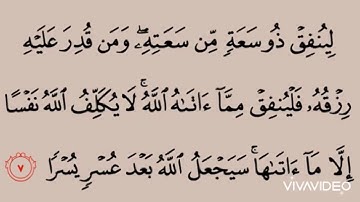 لِيُنفِقۡ ذُو سَعَةٖ مِّن سَعَتِهِۦۖ وَمَن قُدِرَ عَلَيۡهِ
رِزۡقُهُۥ فَلۡيُنفِقۡ مِمَّآ ءَاتَىٰهُ ٱللَّهُۚ لَا يُكَلِّفُ ٱللَّهُ نَفۡسًا
إِلَّا مَآ ءَاتَىٰهَاۚ سَيَجۡعَلُ ٱللَّهُ بَعۡدَ عُسۡرٖ يُسۡرٗا ٧
VIVAVIDEO